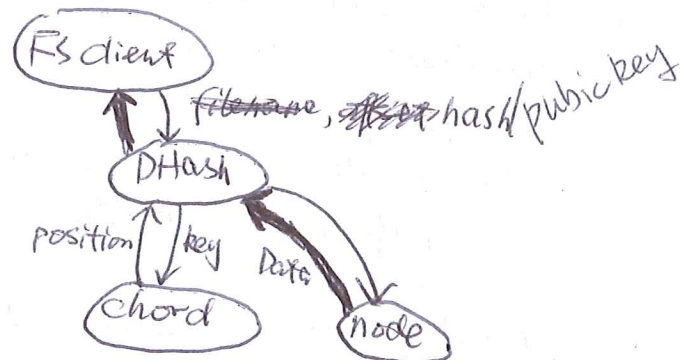 FS client
filename, offset hash/pubic key
DHash
position key Data
chord
node